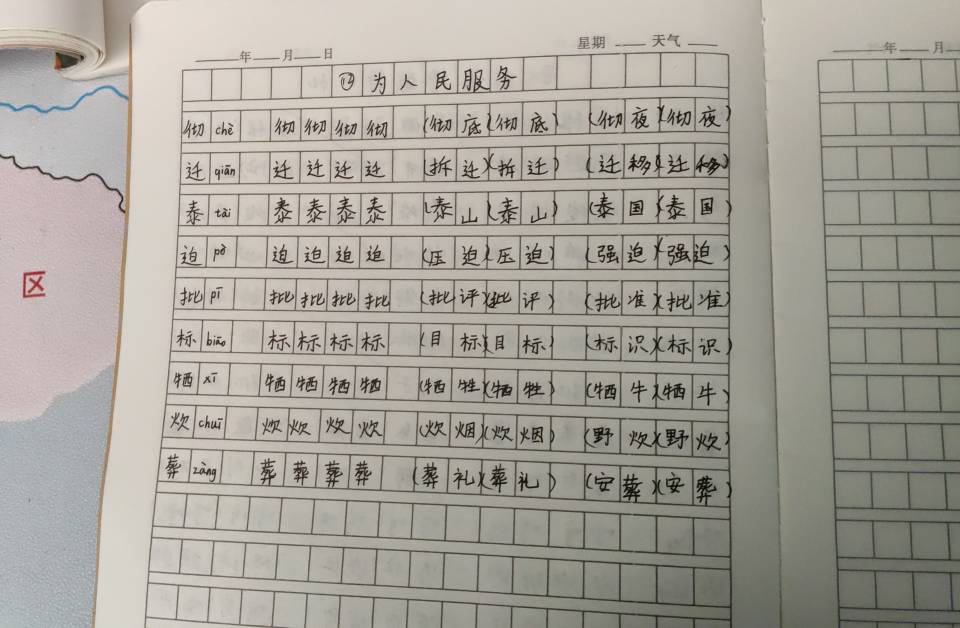 年 月 日 星期 天气
⑫为人民服务
彻 chè 彻 彻 彻 彻 (彻底)(彻底) (彻夜)(彻夜)
迁 qiān 迁 迁 迁 迁 (拆迁)(拆迁) (迁移)(迁移)
泰 tài 泰 泰 泰 泰 (泰山)(泰山) (泰国)(泰国)
迫 pò 迫 迫 迫 迫 (压迫)(压迫) (强迫)(强迫)
批 pī 批 批 批 批 (批评)(批评) (批准)(批准)
标 biāo 标 标 标 标 (目标)(目标) (标识)(标识)
牺 xī 牺 牺 牺 牺 (牺牲)(牺牲) (牺牛)(牺牛)
炊 chuī 炊 炊 炊 炊 (炊烟)(炊烟) (野炊)(野炊)
葬 zàng 葬 葬 葬 葬 (葬礼)(葬礼) (安葬)(安葬)
年 月
区